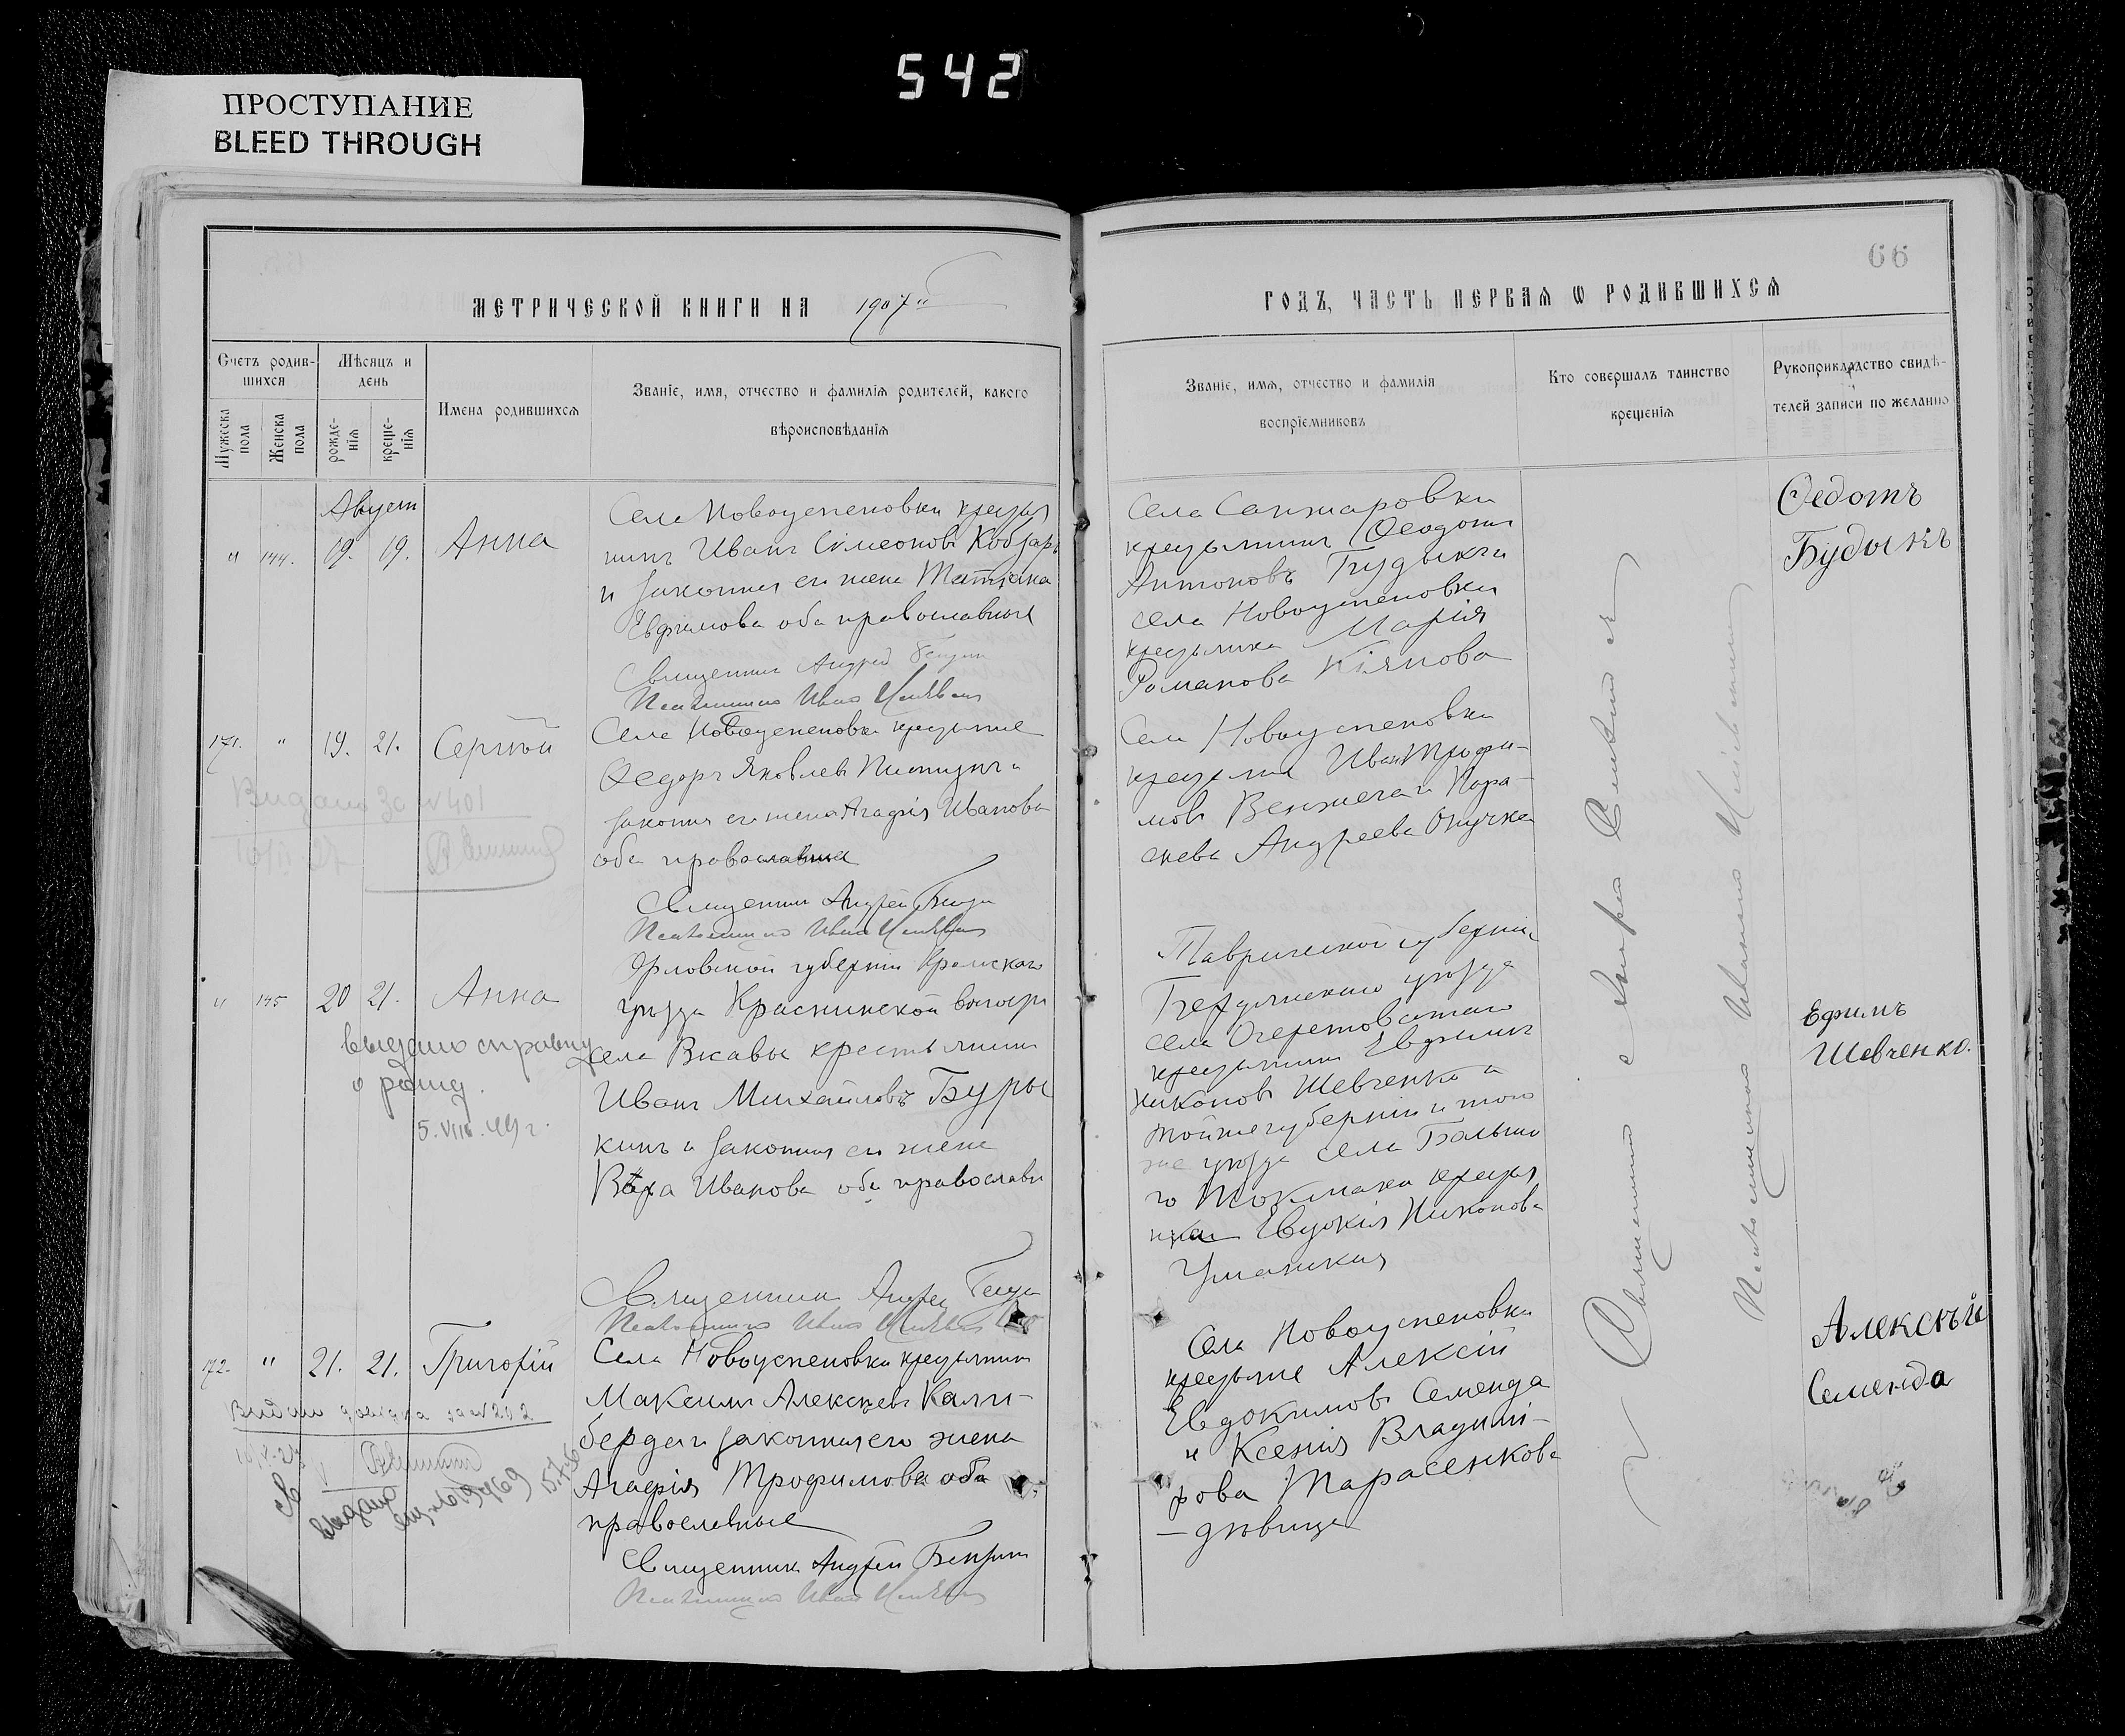 542
ПРОСТУПАНИЕ
BLEED THROUGH
66
МЕТРИЧЕСКОЙ КНИГИ НА 1907
ГОДЪ, ЧАСТЬ ПЕРВАЯ Ѡ РОДИВШИХСЯ
Счетъ родив-
шихся
Мужеска
пола
Женска
пола
Мѣсяцъ и
день
рожде-
нія
креще-
нія
Имена родившихся
Званіе, имя, отчество и фамилія родителей, какого
вѣроисповѣданія
Званіе, имя, отчество и фамилія
воспріемниковъ
Кто совершалъ таинство
крещенія
Рукоприкладство свидѣ-
телей записи по желанію
Август
" 144. 19. 19. Анна
Села Новоуспеновки крестья
нинъ Иванъ Симеоновъ Кобзарь
и законная его жена Татіана
Евфимова оба православные
Священникъ Андрей
Псаломщикъ Иванъ
Села
крестьянинъ Ѳеодотъ
Антоновъ Будыкъ и
села Новоуспеновки
крестьянка Марія
Романова Кіянова
Ѳедотъ
Будыкъ
171. " 19. 21. Сергѣй
Села Новоуспеновки крестьяне
Ѳедоръ Яковлевъ и
законная его жена Агафія Иванова
оба православные
Священникъ Андрей
Псаломщикъ Иванъ
Видано за № 401
Села Новоуспеновки
крестьяне Иванъ Трофи-
мовъ и Пара-
скева Андреева
" 145 20 21. Анна
Орловской губерніи Кромскаго
уѣзда Краснинской волости
села крестьянинъ
Иванъ Михайловъ Буры
кинъ и законная его жена
Вѣра Иванова оба православн
Священникъ Андрей
Псаломщикъ Иванъ
выдано справку
о рожд.
5.VIII.49 г.
Таврической губерніи
Бердянскаго уѣзда
села Очеретоватаго
крестьянинъ Евфимъ
Никоновъ Шевченко и
той же губерніи и того
же уѣзда села Большо
го Токмака крестья
нка Евдокія Никонова
Уманская
Ефимъ
Шевченко.
172. " 21. 21. Григорій
Села Новоуспеновки крестьянин
Максимъ Алексѣевъ Кали-
берда и законная его жена
Агафія Трофимова оба
православные
Священникъ Андрей
Псаломщикъ Иванъ
Видано довідка за № 202
выдано
Села Новоуспеновки
крестьяне Алексій
Евдокимовъ Семенда
и Ксенія Владими-
рова Тарасенкова
— дѣвица
Алексѣй
Семенда
Священникъ
Псаломщикъ Иванъ